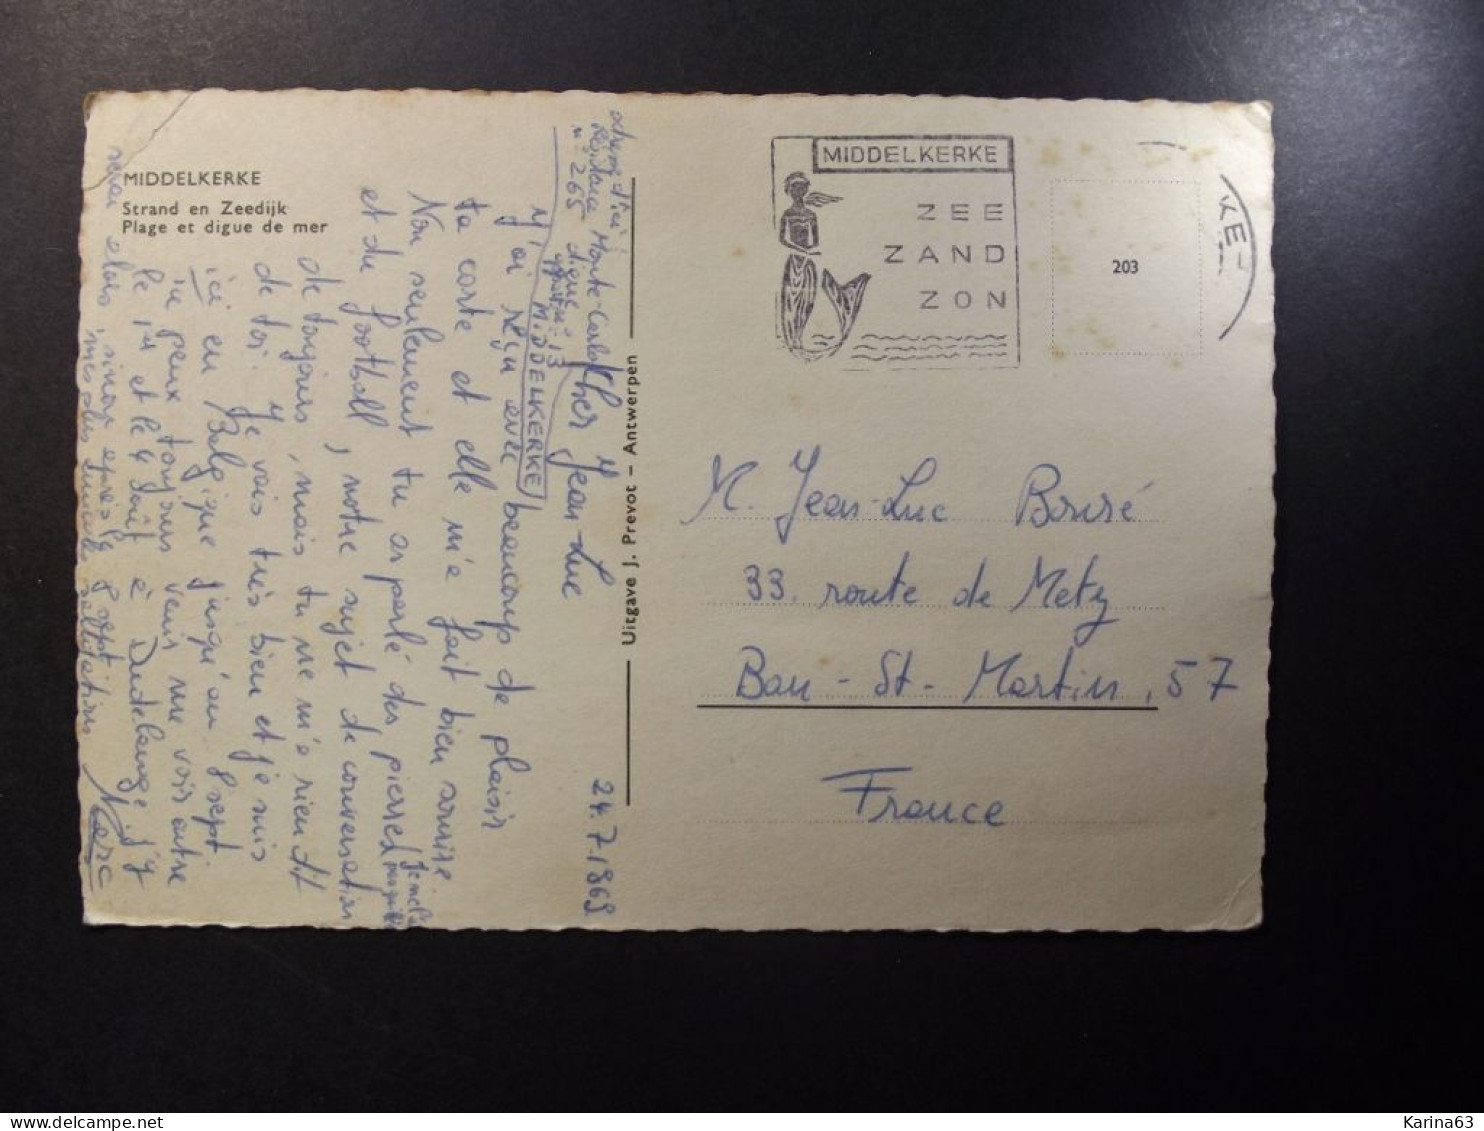 MIDDELKERKE
Strand en Zeedijk
Plage et digue de mer
Résidence Monte-Carlo
n° 265 digue
13
MIDDELKERKE
24.7.1969
Cher Jean-Luc
J'ai reçu avec beaucoup de plaisir
ta carte et elle m'a fait bien sourire.
Non seulement tu as parlé des pierres
et du football, notre sujet de conversation
de toujours, mais tu ne m'a rien dit
de toi. Je vais très bien et je suis
ici en Belgique jusqu'au 8 sept.
je peux toujours venir me voir entre
le 1er et le 4 août à Dudelange. J'y
serai alors, sinon après le 8 sept
mes plus sincères
Marc
Uitgave J. Prevot – Antwerpen
MIDDELKERKE
ZEE
ZAND
ZON
KE
203
M. Jean-Luc Bouré
33. route de Metz
Ban-St-Martin, 57
France
Karina63